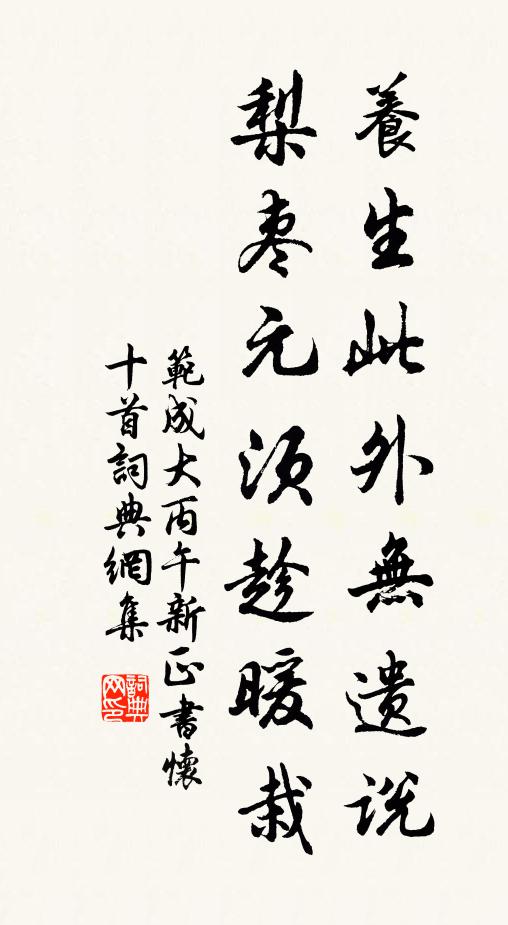 養生此外無遺說
梨枣元須趁暖栽
範成大丙午新正書懷
十首詞典網集
詞典
网印